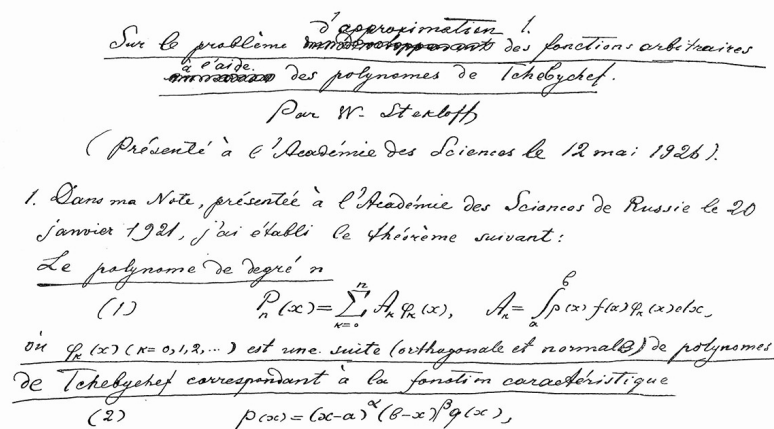 d'approximation 1.
Sur le problème des fonctions arbitraires
à l'aide.
des polynomes de Tchebychef.
Par W. Stekloff
(Présenté à l'Académie des Sciences le 12 mai 1926).
1. Dans ma Note, présentée à l'Académie des Sciences de Russie le 20
janvier 1921, j'ai établi le théorème suivant:
Le polynome de degré n
(1) Pₙ(x) = ∑ₖ₌₀ⁿ Aₖ φₖ(x), Aₖ = ∫ₐᵇ p(x) f(x) φₖ(x) dx,
où φₖ(x) (k=0,1,2,...) est une suite (orthogonale et normale) de polynomes
de Tchebychef correspondant à la fonction caractéristique
(2) p(x) = (x-a)^α (b-x)^β q(x),